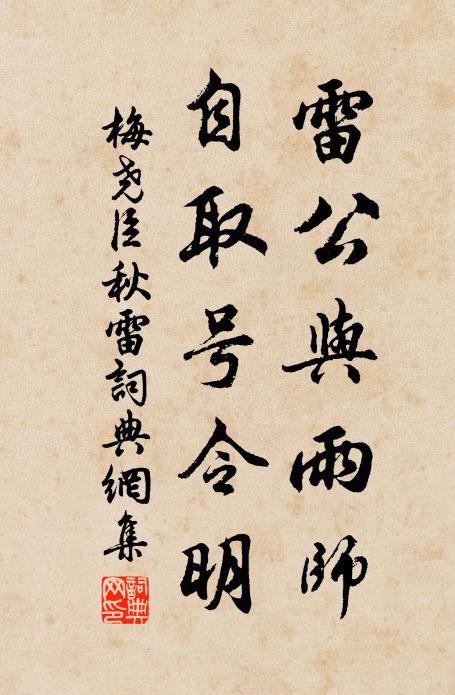 雷公與雨師
自取号令明
梅尧臣秋雷詞典網集
詞典网印